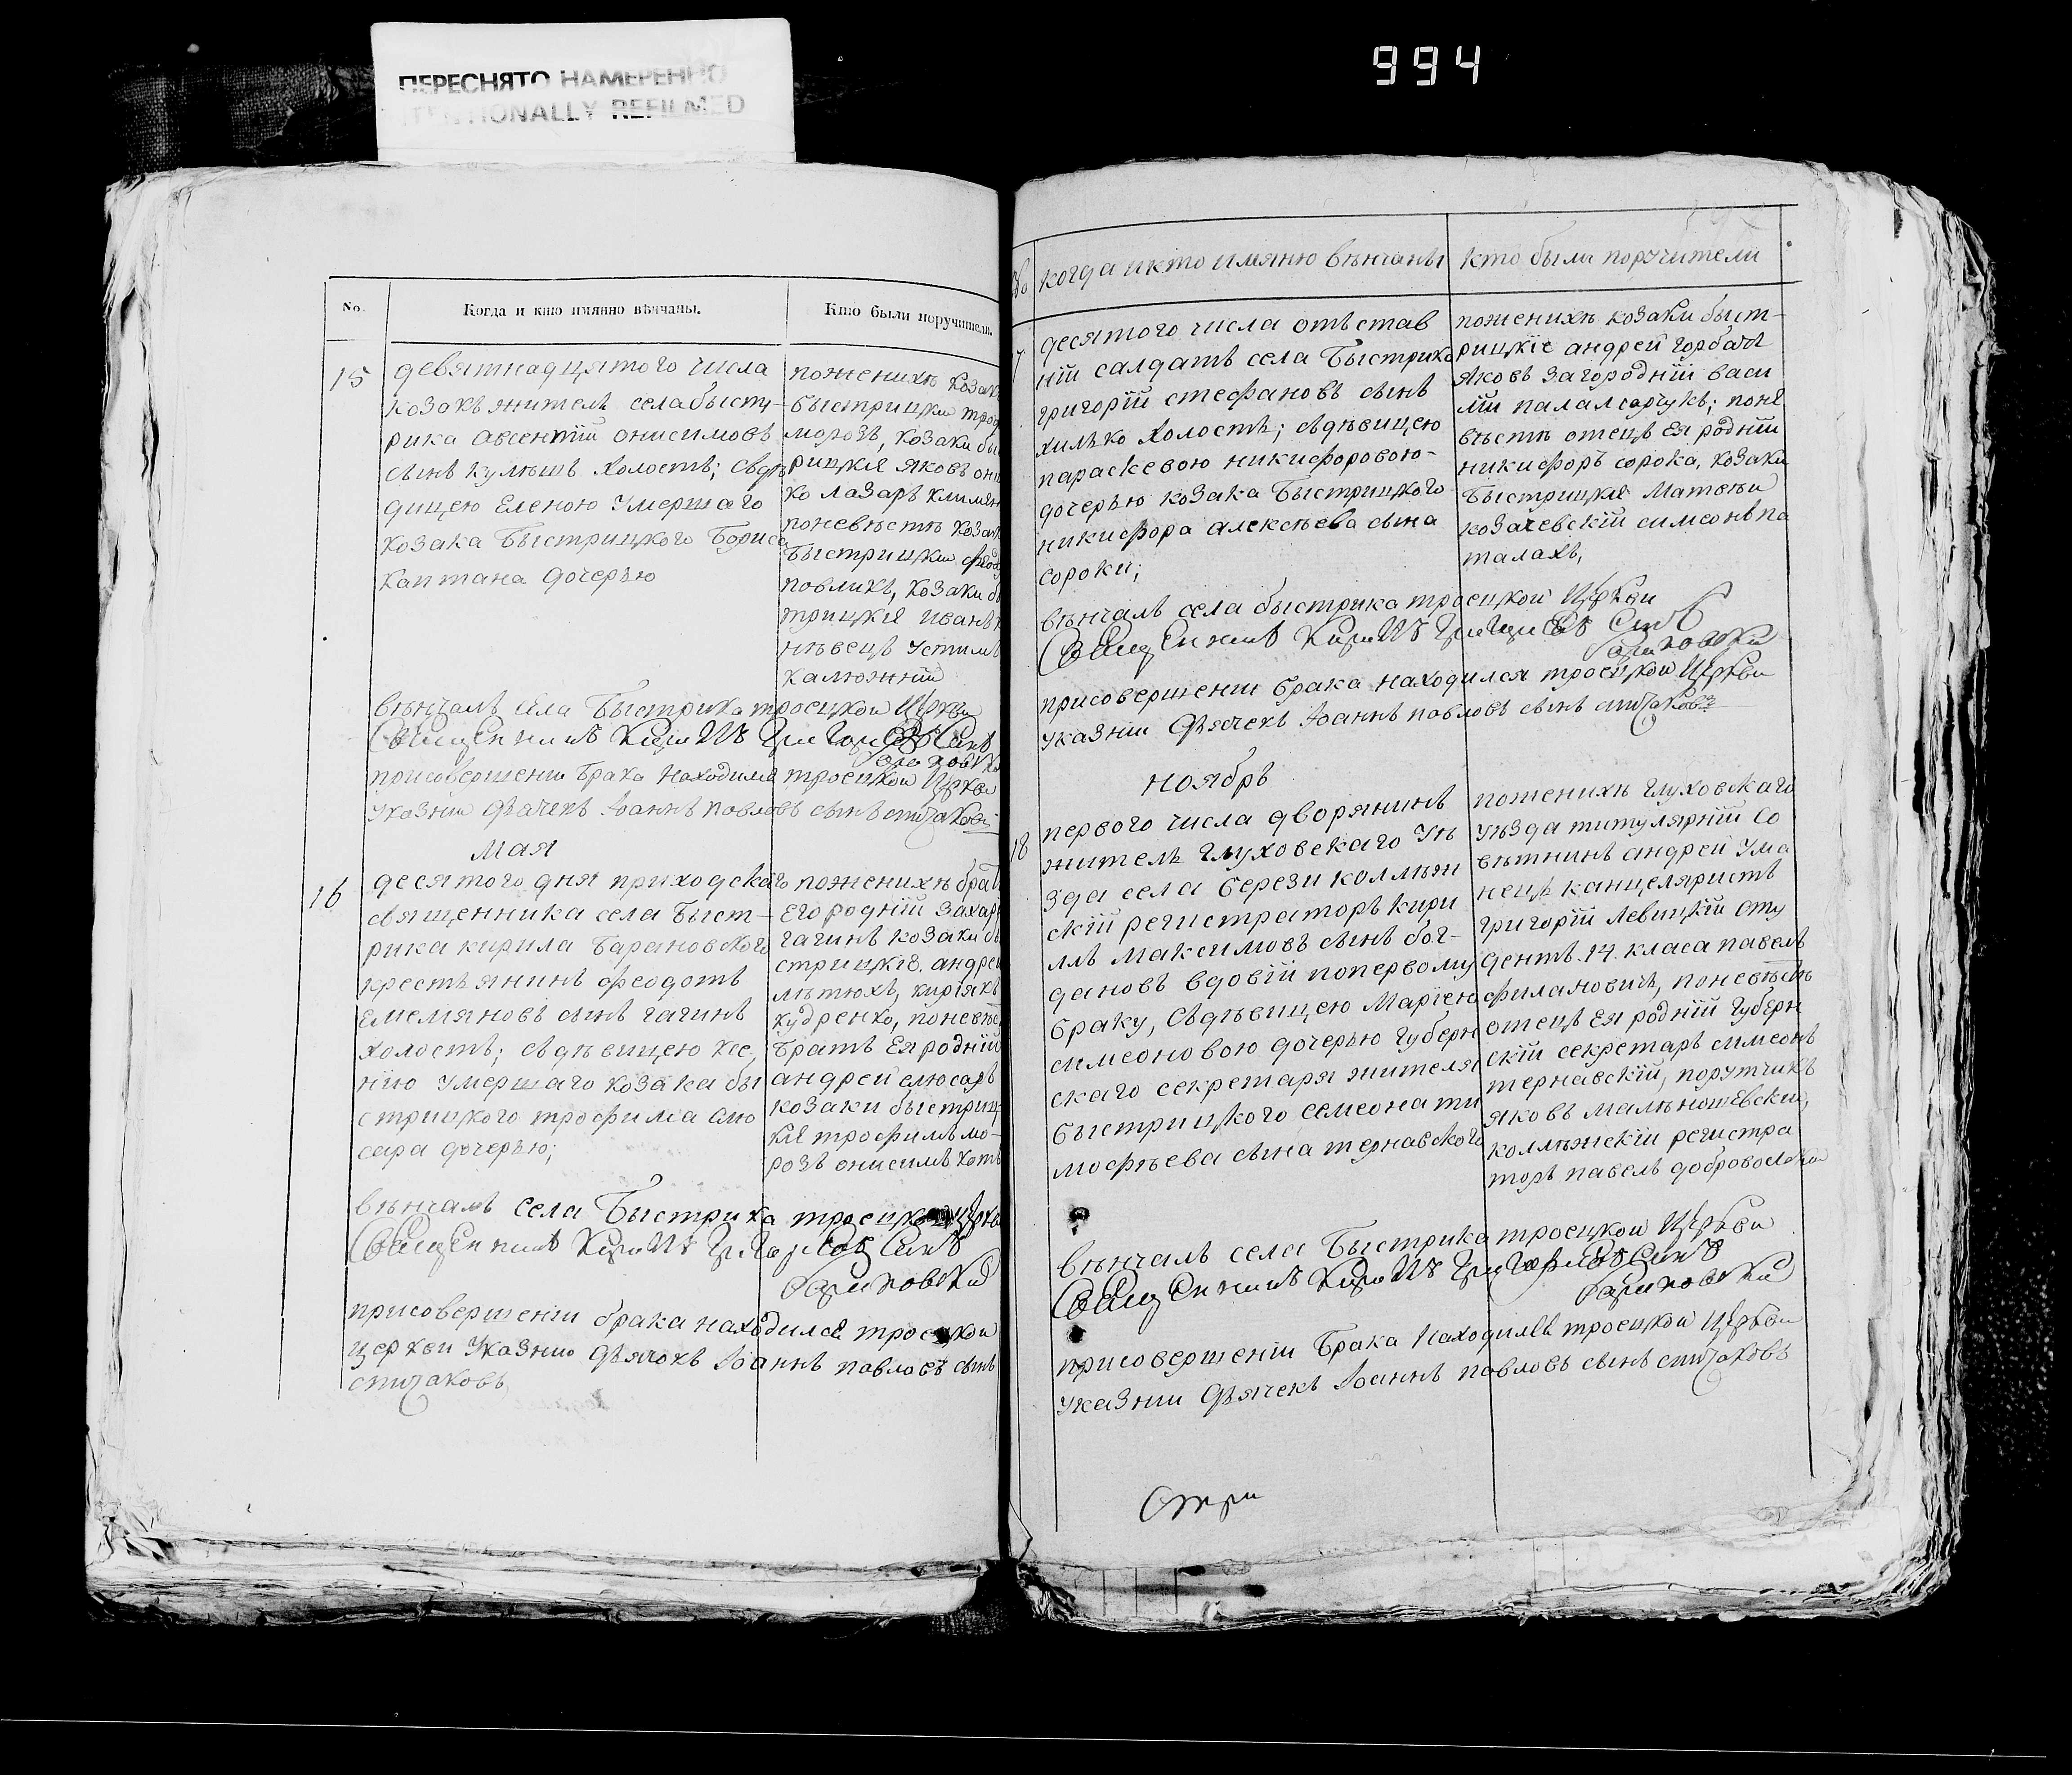 ПЕРЕСНЯТО НАМЕРЕННО
TENTIONALLY REFILMED
994
No.
Когда и кто имянно вѣнчаны.
Кто были поручители.
15
девятнадцятого числа
козакъ житель села быст-
рика Авсентій онисимовъ
сынъ кулѣшъ холостъ; съдѣ
вицею Еленою Умершаго
козака Быстрицкого Бориса
каптана дочерью
поженихѣ козак
быстрицкій
морозъ, козаки бы
рицкія яковъ они
ко лазаръ климен
поневѣстѣ козак
Быстрицкій феод
повликъ, козаки бы
трицкія иванъ
нѣвецъ устимъ
калюжній
вѣнчалъ села Быстрика троецкои Церкви
Священникъ Кириллъ Григоріевъ Синъ
Барановскій
присовершеніи Брака находился троецкой Церкви
Указніи Дьячекъ Іоаннъ павловъ сынъ
мая
16
десятого дня приходскаго
священника села Быст-
рика кирила Барановского
крестьянинъ феодотъ
Емемяновъ сынъ гагинъ
холостъ; съдѣвицею Ксе,
нію умершаго козака бы
стрицкого трофима слю
сара дочерью;
поженихѣ брат
Его родній захар
гагинъ козаки бы
стрицкіе. андрей
лѣтюхъ, киріякъ
кудренко, поневѣс
Братъ Ея родній
андрей слюсаръ
козаки быстриц
кія трофимъ мо-
розъ онисимъ
вѣнчалъ села Быстрика троецкой церкви
Священникъ Кириллъ Григоріевъ Синъ
Барановскій
присовершеніи брака находился троецкой
церкви Указнію дьячокъ Іоаннъ павловъ сынъ
No
когда икто имянно вѣнчаны
кто были поручители
17
десятого числа отъстав
ній салдатъ села Быстрика
григорій стефановъ сынъ
хилько холостъ; съдѣвицею
параскевою никифоровою-
дочерью козака Быстрицкого
никифора алексѣева сына
сороки;
поженихѣ козаки быст-
рицкіе андрей горбачъ
яковъ загородній васи
лій ; поне
вѣстѣ отецъ Ея родній
никифоръ сорока, козаки
Быстрицкія Матвѣи
козачевскій симеонъ па
талахъ,
вѣнчалъ села быстрика троецкой Церкви
Священникъ Кириллъ Григоріевъ Синъ
Барановскій
присовершеніи брака находился троецкой Церкви
указніи Дьячекъ Іоаннъ павловъ сынъ
ноябрь
18
первого числа дворянинъ
житель глуховскаго уѣ
зда села берези коллѣж
скій регистраторъ кири
ллъ максимовъ сынъ бог-
дановъ вдовій поперв
ому
браку, съдѣвицею Маріею
симеоновою дочерью губерн
скаго секретаря жителя
быстрицкого семеона ти
мофѣева сына тернавского
поженихѣ глуховскаго
уѣзда титулярній со
вѣтникъ андрей Ума
нецъ канцеляристъ
григорій левицкій сту
дентъ 14. класа павелъ
филановичъ, поневѣстѣ
отецъ Ея родній губерн
скій секретаръ симеонъ
тернавскій, порутчикъ
яковъ малѣношевскій,
коллѣжскій регистра
торъ павелъ добровольскій
вѣнчалъ села Быстрика троецкой Церкви
Священникъ Кириллъ Григоріевъ Синъ
Барановскій
присовершеніи Брака находился троецкой Церкви
указніи Дьячекъ Іоаннъ павловъ сынъ